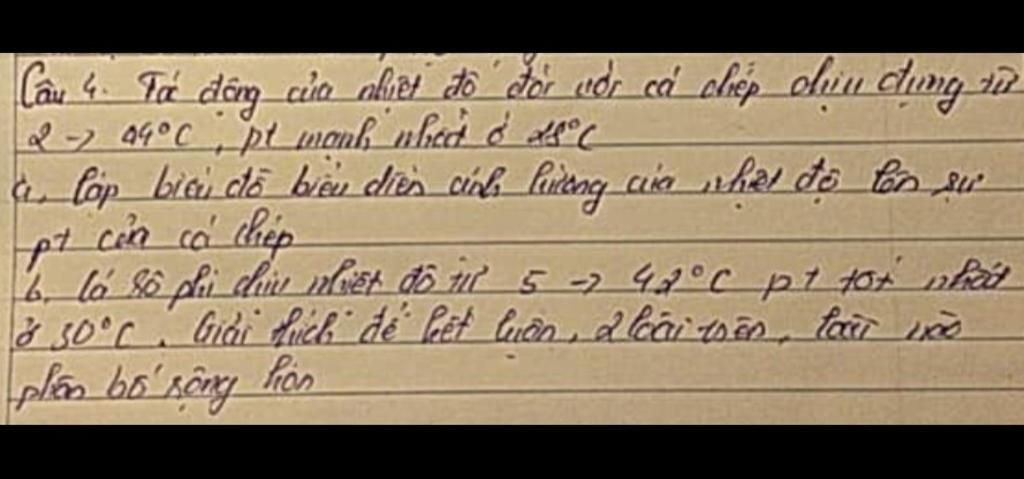 Câu 4. Tác động của nhiệt độ đối với cá chép chịu đựng từ
2 -> 44°C, pt mạnh nhất ở 28°C
a, lập biểu đồ biểu diễn ảnh hưởng của nhiệt độ lên sự
pt của cá chép
b, cá rô phi chịu nhiệt độ từ 5 -> 42°C pt tốt nhất
ở 30°C. Giải thích để kết luận, 2 loài trên, loài nào
phân bố rộng hơn